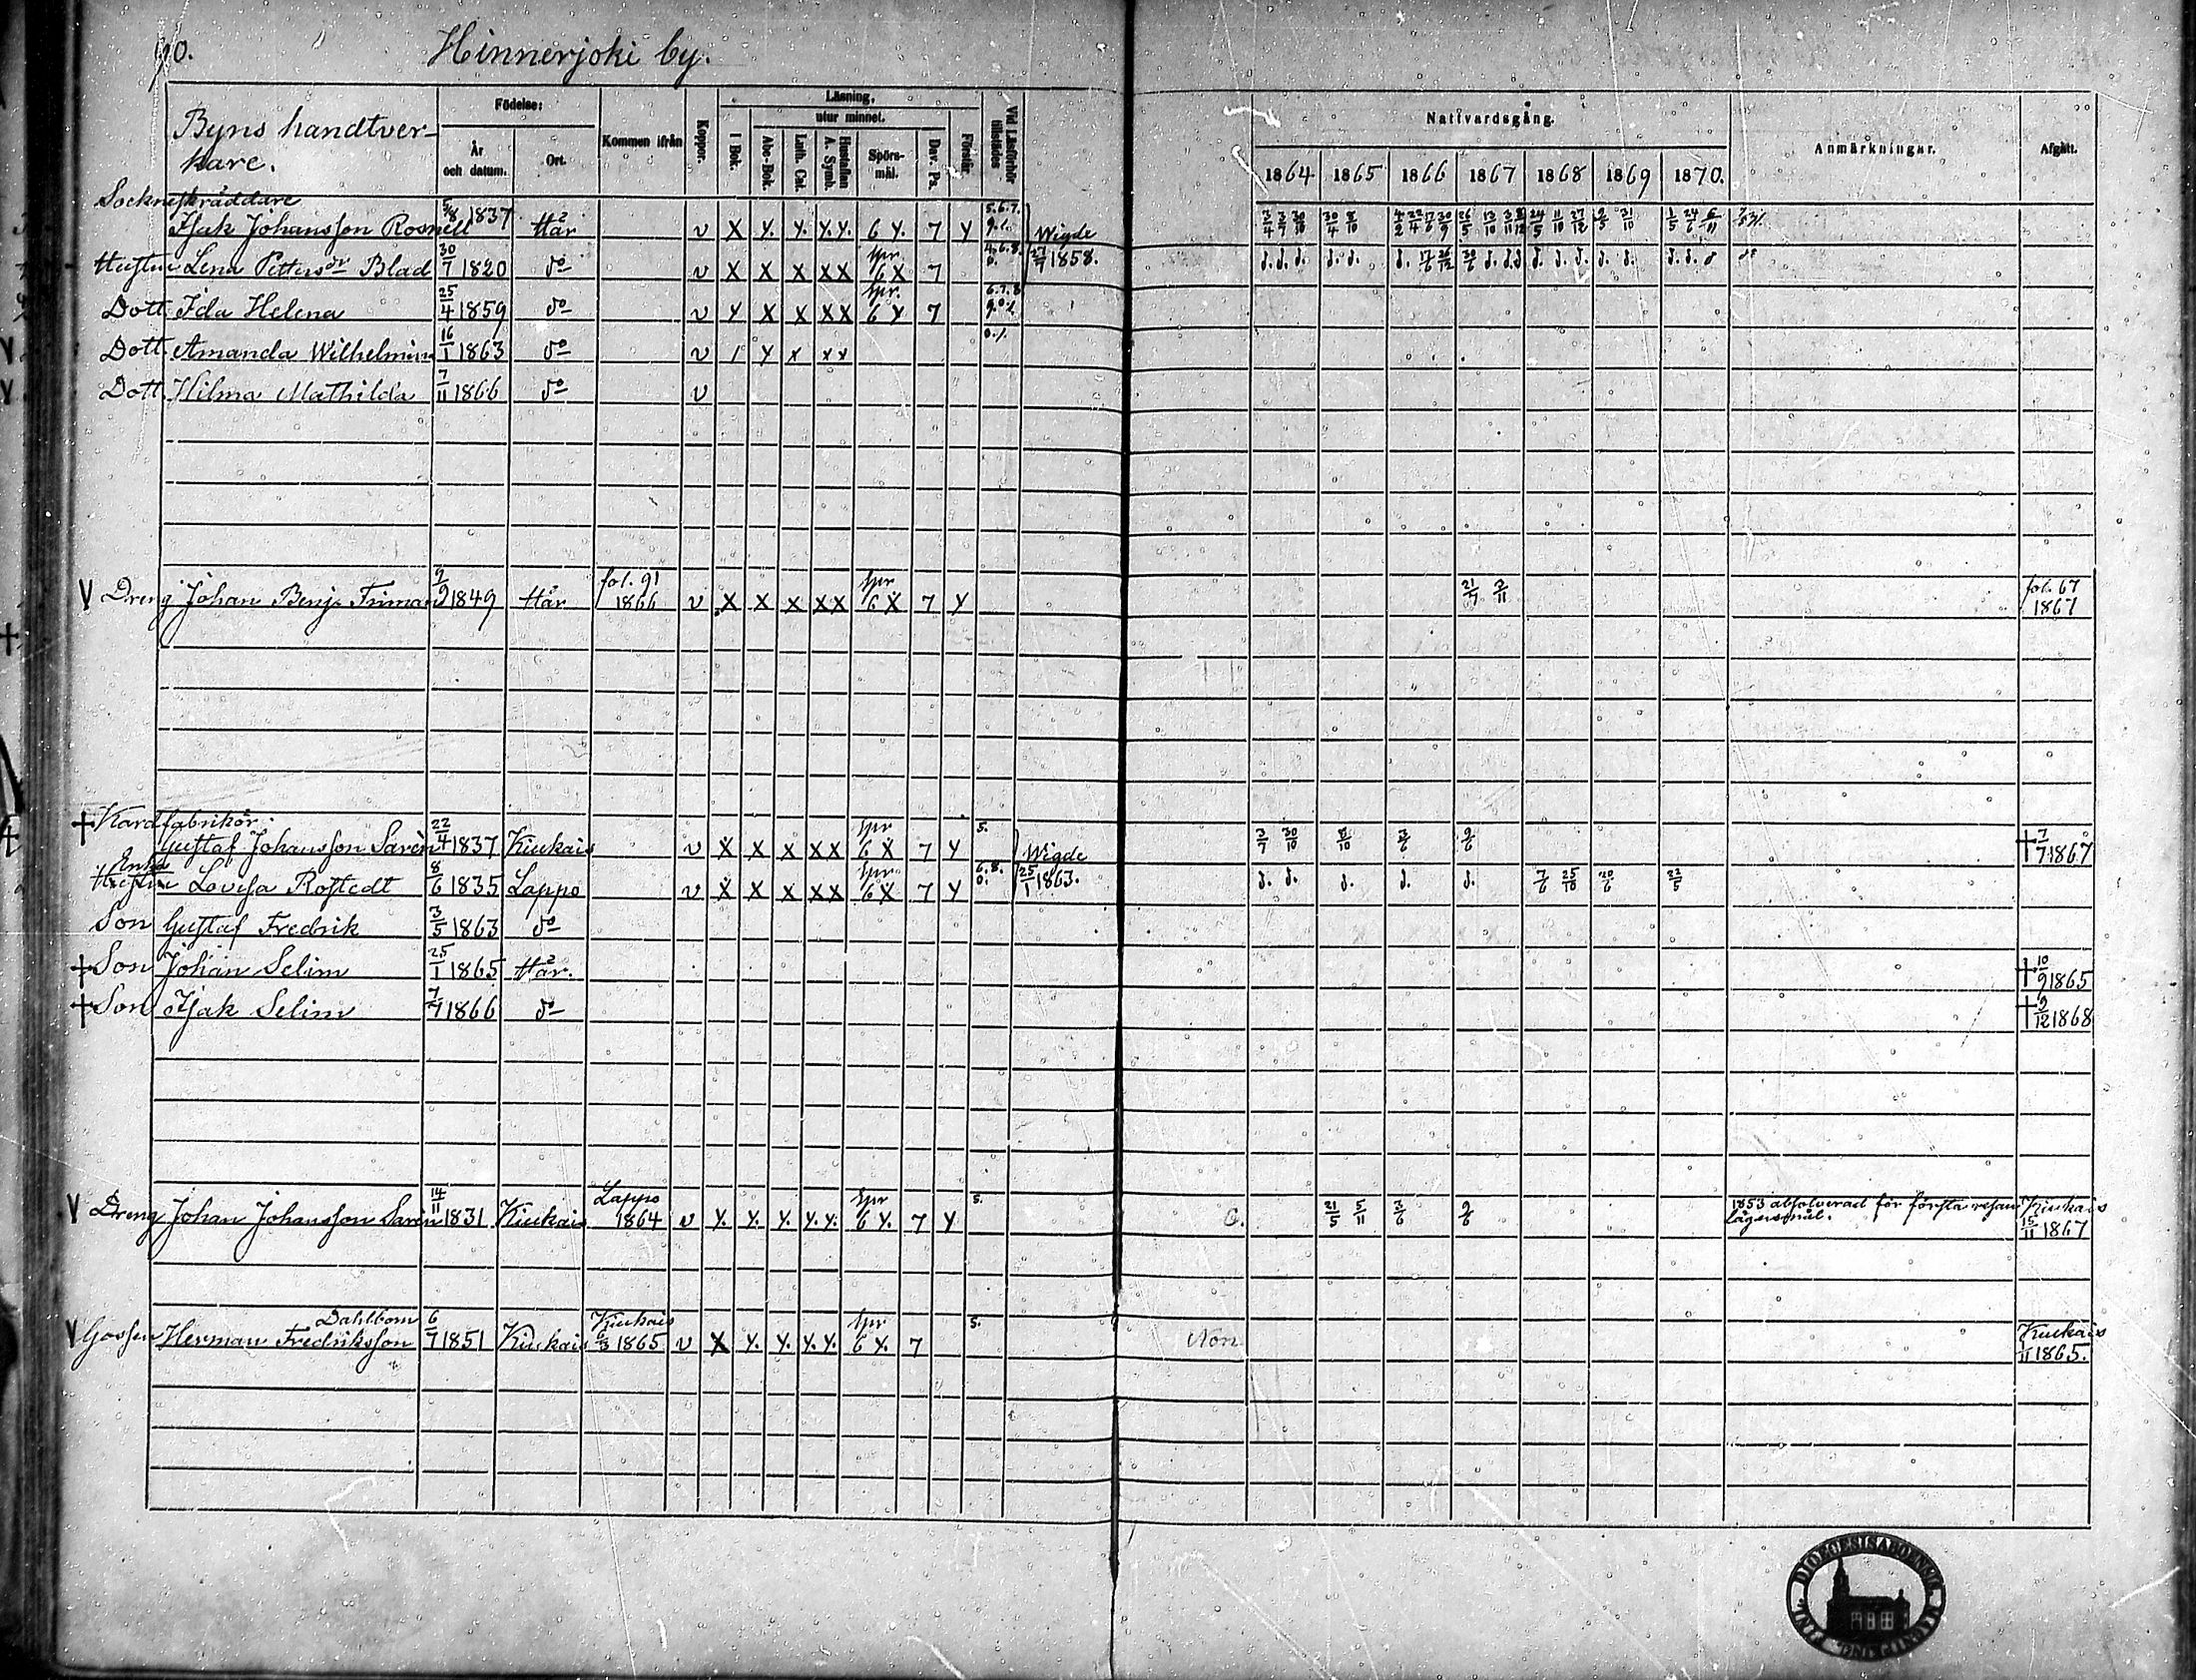 90. Hinnerjoki by.
Byns handtver-
kare.
Födelse:
År
och datum.
Ort.
Kommen ifrån
Koppor.
Läsning,
I Bok.
utur minnet.
Abc-Bok.
Luth. Cat.
Hustaflan
A. Symb.
Spörs-
mål.
Dav. Ps.
Förstår.
Vid Läsförhör
tillstädes
Nattvardsgång.
1864 1865 1866 1867 1868 1869 1870.
Anmärkningar.
Afgått.
Sockneskräddare
Isak Johansson Rosnell 5/8 1837 Här v X y. y. y. y. 6 y. 7 y 5.6.7. Wigde
Hustrun Lena Pettersdr Blad 30/7 1820 do v X X X X X spr 6 X 7 4.6.8. 27/7 1858.
Dott. Ida Helena 25/4 1859 do v y X X X X spr. 6 y 7 6.7.8
Dott. Amanda Wilhelmina 16/1 1863 do v / y x x x
Dott. Hilma Mathilda 7/11 1866 do v
V Dreng Johan Benj. Friman 9/9 1849 Här fol. 91 1866 v X X X X X spr 6 X 7 y 21/7 3/11 fol. 67 1867
† Kardfabrikör.
Gustaf Johansson Sarèn 22/4 1837 Kiukais v X X X X X spr 6 X 7 y 5. Wigde 3/7 30/10 8/10 3/6 9/6 † 7/7 1867
Enka
Hustru Lovisa Rostedt 8/6 1835 Lappo v X X X X X spr 6 X 7 y 6.8. 0. 25/1 1863. d. d. d. d. d. 7/6 25/10 20/6 22/5
Son Gustaf Fredrik 3/5 1863 do
† Son Johan Selim 25/1 1865 Här. † 10/9 1865
† Son Isak Selim 7/7 1866 do † 9/12 1868
V Dreng Johan Johansson Sarèn 14/11 1831 Kiukais Lappo 1864 v y. y. y. y. y. spr 6 y. 7 y 5. C. 21/5 5/11 3/6 9/6 1853 absolverad för första resan Kiukais
lägersmål. 15/11 1867
Dahlbom
V Gossen Herman Fredriksson 6/7 1851 Kiukais Kiukais 6/3 1865 v X y. y. y. y. spr 6 y. 7 5. Non Kiukais
1865.
DIOECESIS ABOENSIS